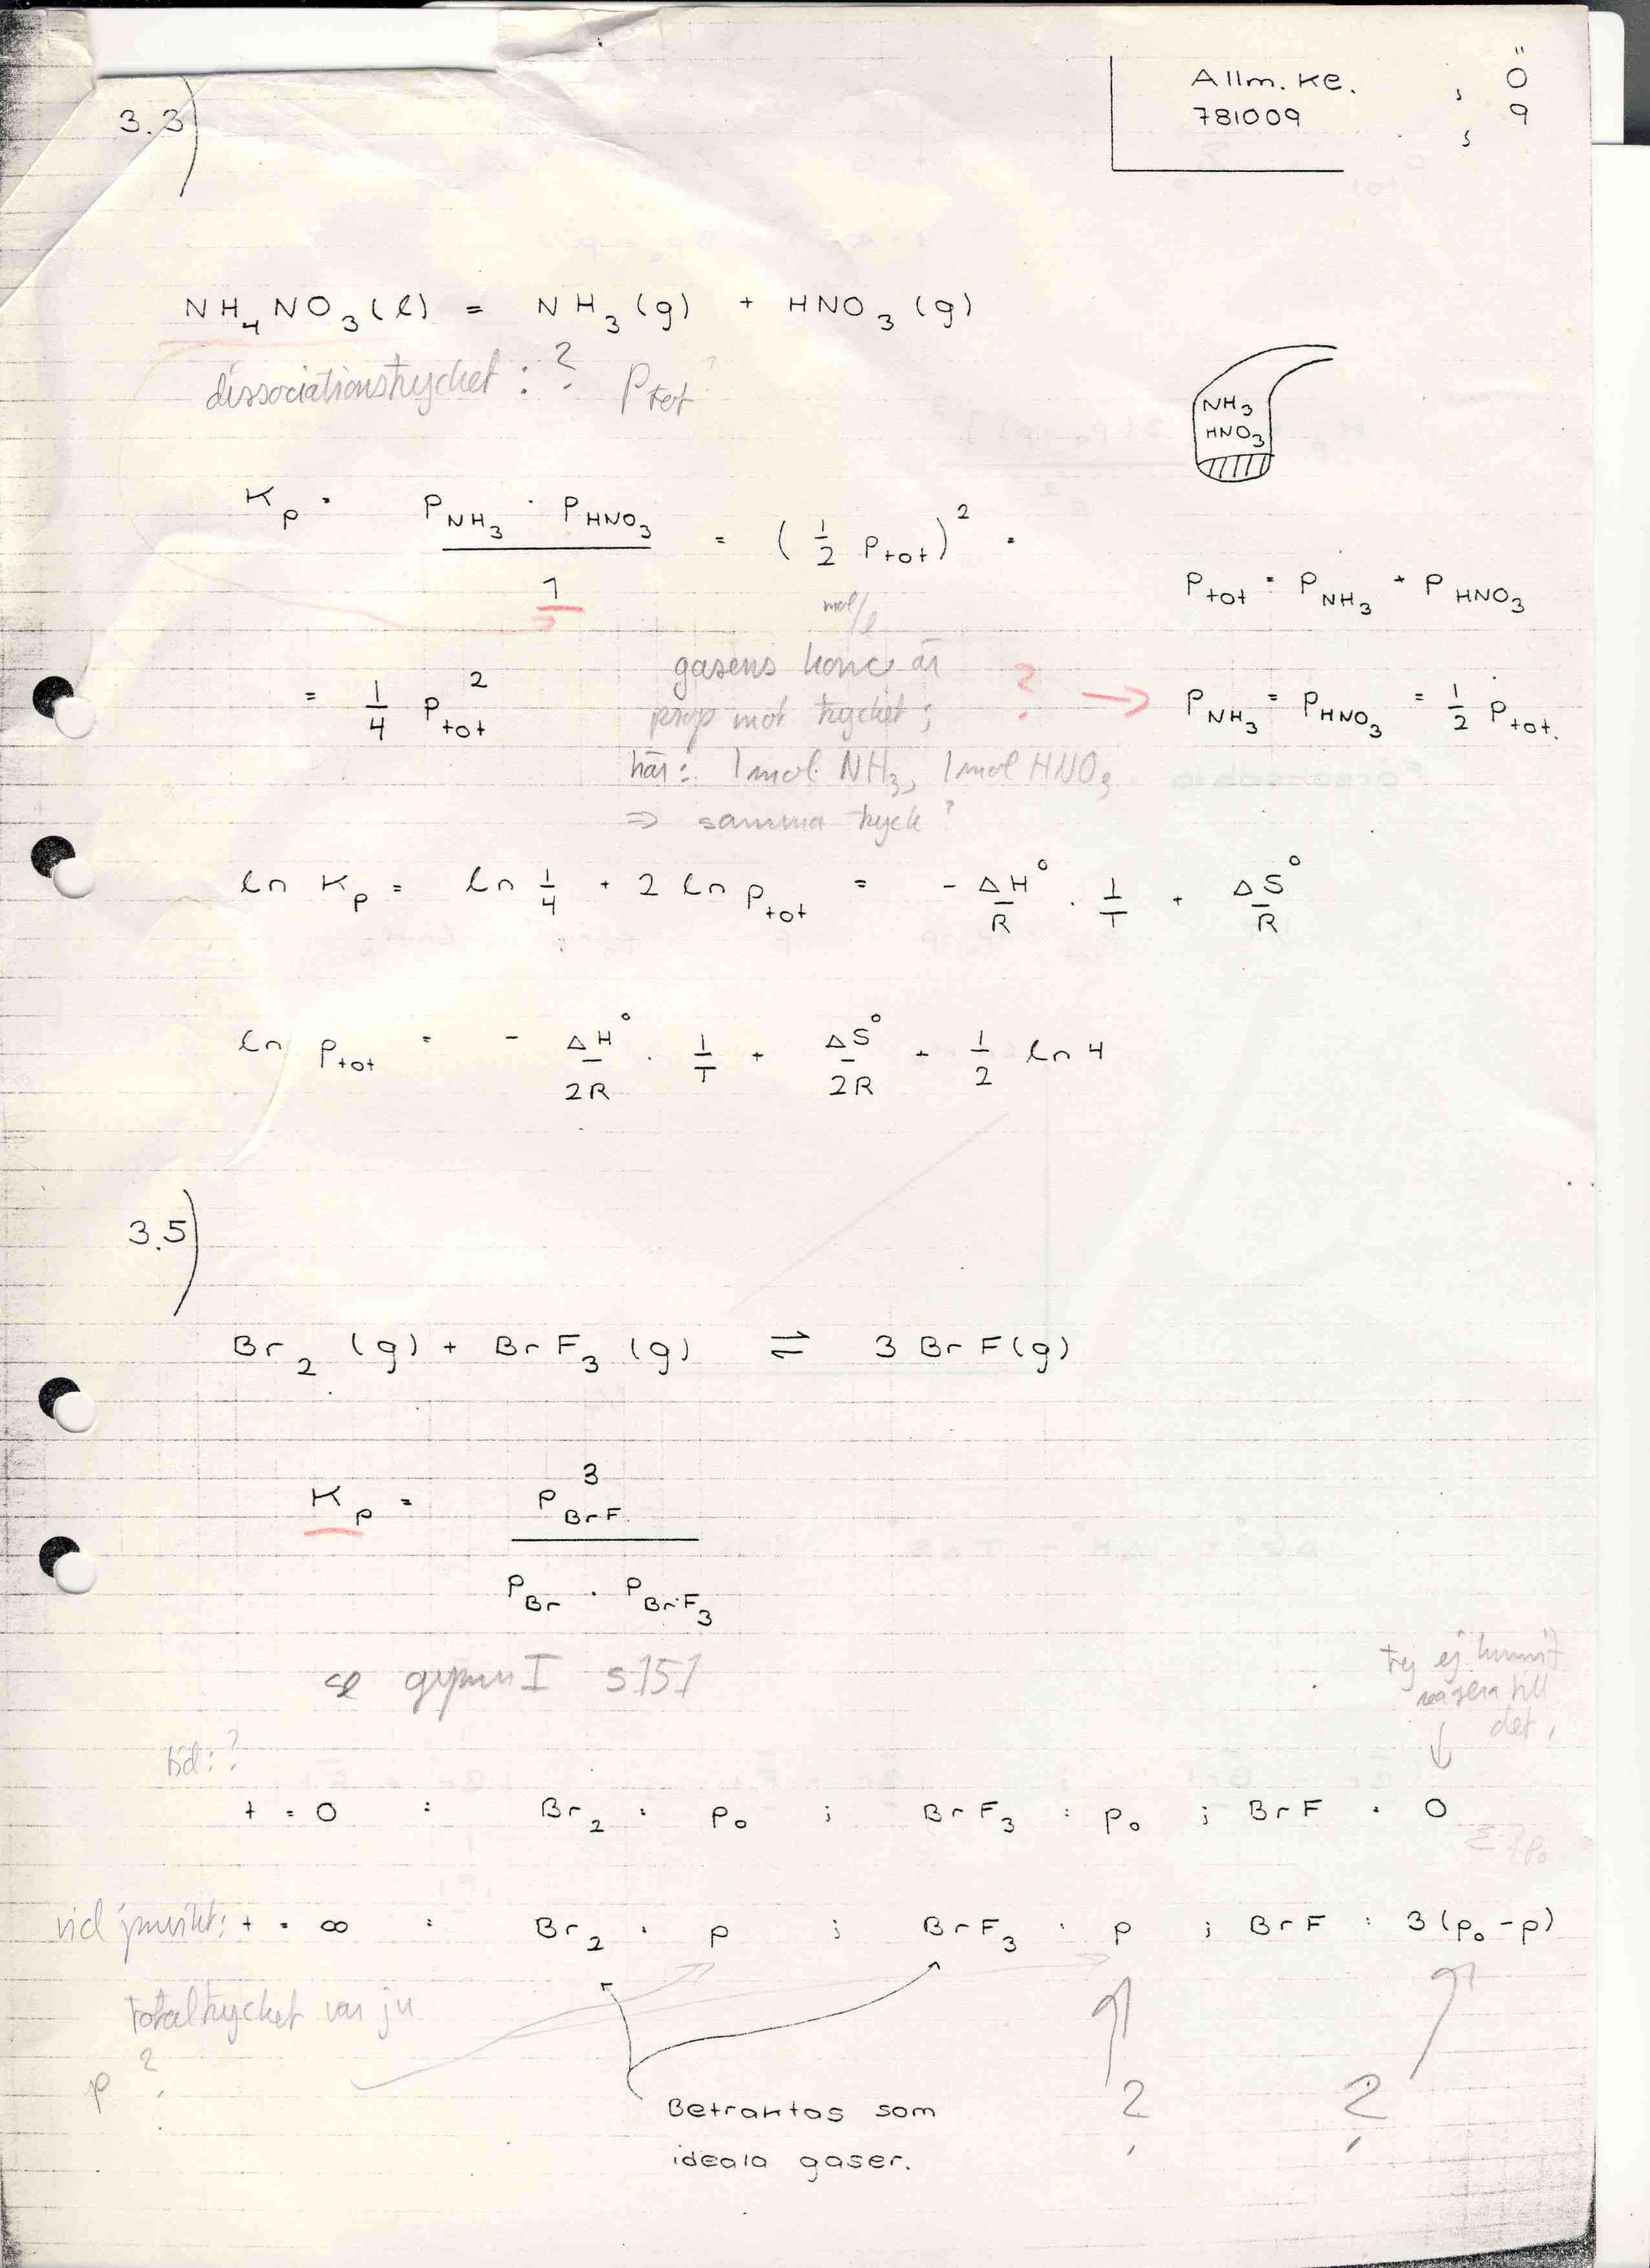 Allm. Ke. , Ö
781009 , 9
3.3)
NH₄NO₃(l) = NH₃(g) + HNO₃(g)
dissociationstrycket : ? Ptot ?
NH₃
HNO₃
Kp = PNH₃ · PHNO₃ / 1 = (1/2 Ptot)² =
Ptot = PNH₃ + PHNO₃
mol/l
= 1/4 Ptot²
gasens konc är
prop mot trycket ;
? → PNH₃ = PHNO₃ = 1/2 Ptot.
här : 1 mol NH₃, 1 mol HNO₃
⇒ samma tryck ?
ln Kp = ln 1/4 + 2 ln Ptot = - ΔH°/R · 1/T + ΔS°/R
ln Ptot = - ΔH°/2R · 1/T + ΔS°/2R + 1/2 ln 4
3.5)
Br₂ (g) + BrF₃ (g) ⇌ 3 BrF(g)
Kp = P³BrF / PBr · PBrF₃
se gymn I s151
ej hunnit
reagera till
det,
↓
tid : ?
t = 0 : Br₂ : p₀ ; BrF₃ : p₀ ; BrF : 0
vid jmvikt: t = ∞ : Br₂ : p ; BrF₃ : p ; BrF : 3(p₀-p)
totaltrycket var ju
p ?
? ?
Betraktas som
ideala gaser.